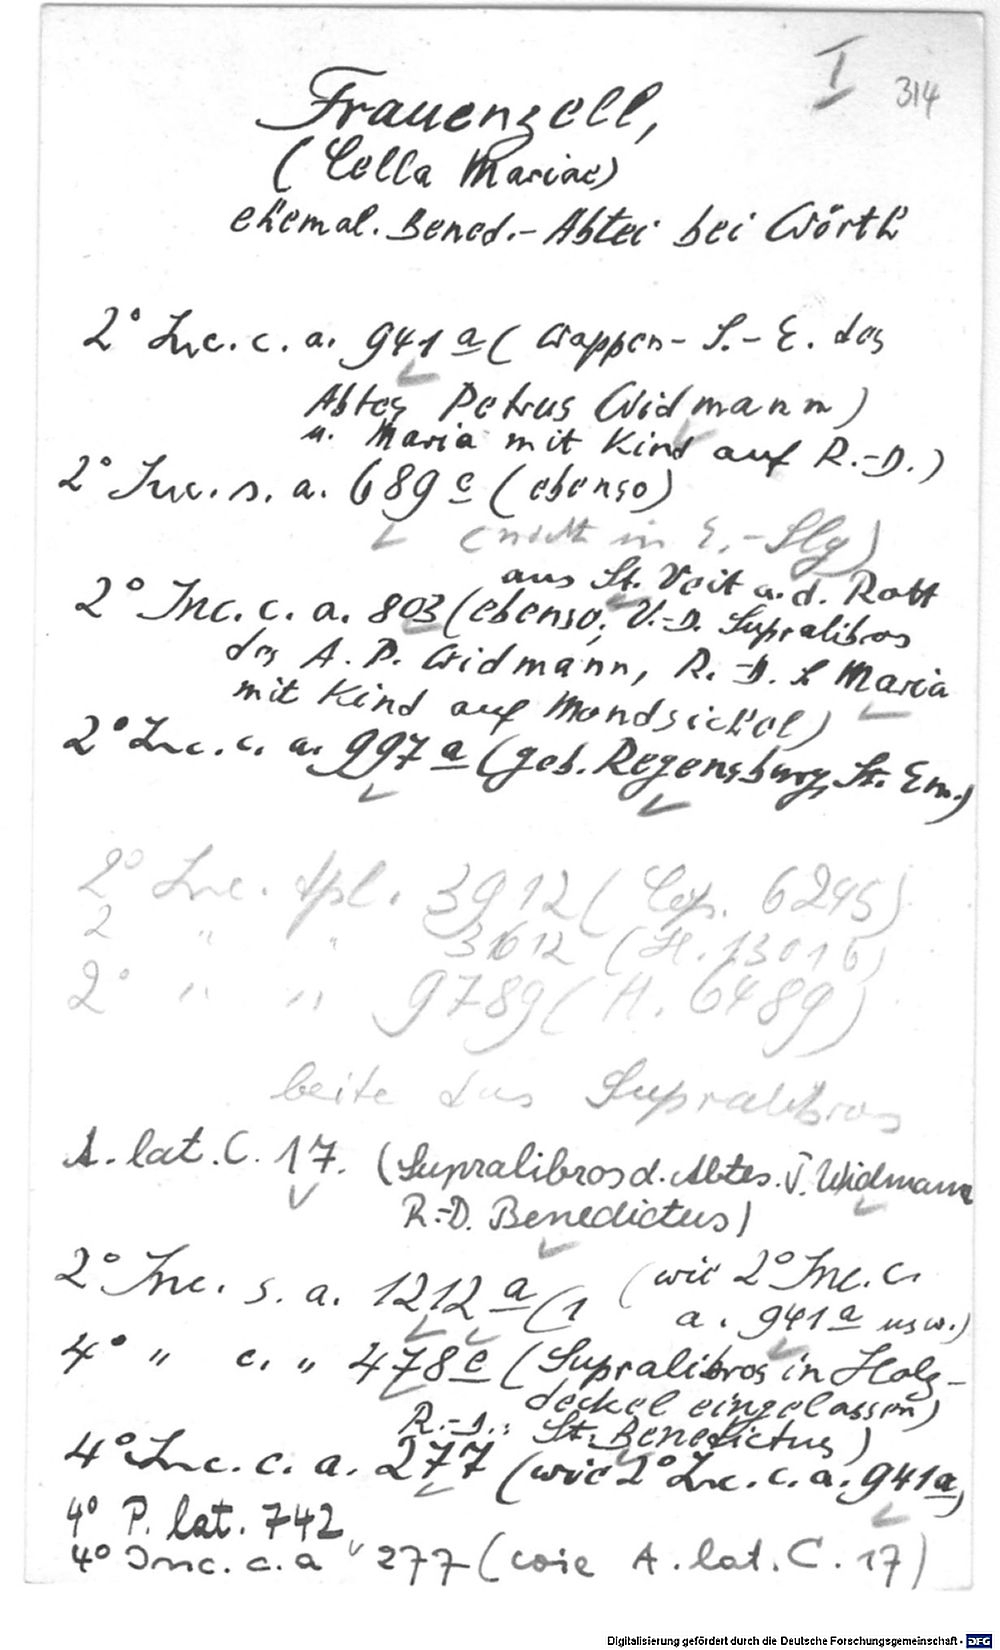 I 314
Frauenzell,
(Cella Mariae)
ehemal. Bened.-Abtei bei Wörth
2° Inc. c. a. 941 a ( Wappen-S.-E. des
Abtes Petrus Widmann)
u. Maria mit Kind auf R.-D.)
2° Inc. s. a. 689 c (ebenso)
(nicht in E.-Slg)
aus St. Veit a. d. Rott
2° Inc. c. a. 803 (ebenso, V.-D. Supralibros
des A. P. Widmann, R.-D. Maria
mit Kind auf Mondsichel)
2° Inc. c. a. 997 a (geb. Regensburg, St. Em.)
2° Inc. dpl. 3912 (Cop. 6245)
2 " " 3612 (H. 13016)
2° " " 9789 (H. 6489)
beite das Supralibros
A. lat. C. 17. (Supralibros d. Abtes. J. Widmann
R.-D. Benedictus)
2° Inc. s. a. 1212 a (1 (wie 2° Inc. c.
a. 941 a usw.)
4° " c. " 478 e (Supralibros in Holz-
deckel eingelassen)
R.-D.: St. Benedictus)
4° Inc. c. a. 277 (wie 2° Inc. c. a. 941a)
4° P. lat. 742
4° Inc. c. a 277 (wie A. lat. C. 17)
Digitalisierung gefördert durch die Deutsche Forschungsgemeinschaft - DFG